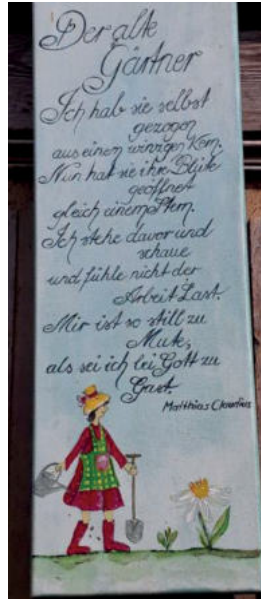 Der alte
Gärtner
Ich hab sie selbst
gezogen
aus einem winzigen Kern.
Nun hat sie ihre Blüte
geöffnet
gleich einem Stern.
Ich stehe davor und
schaue
und fühle nicht der
Arbeit Last.
Mir ist so still zu
Mute,
als sei ich bei Gott zu
Gast.
Matthias Claudius